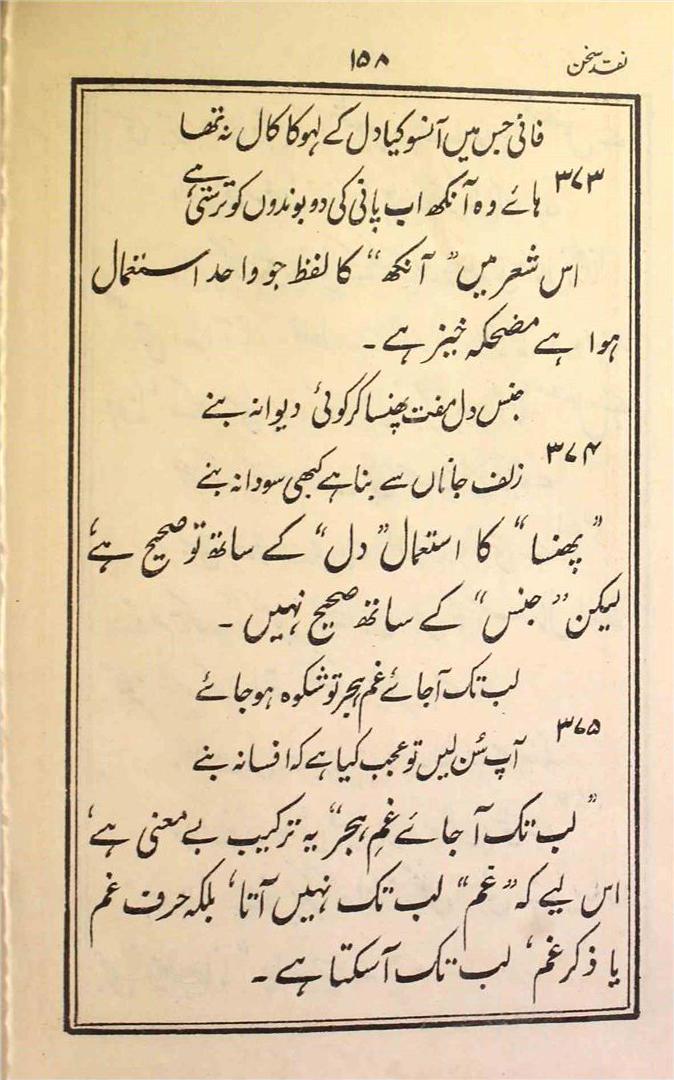 نقد سخن
۱۵۸
فانی جس میں آنسو کیا دل کے لہو کا کال نہ تھا
۳۷۳
ہائے وہ آنکھ اب پانی کی دو بوندوں کو ترستی ہے
اس شعر میں ”آنکھ“ کا لفظ جو واحد استعمال
ہوا ہے مضحکہ خیز ہے۔
جنس دل مفت پھنسا کر کوئی دیوانہ بنے
۳۷۴
زلف جاناں سے بنا ہے کبھی سودا نہ بنے
”پھنسا“ کا استعمال ”دل“ کے ساتھ تو صحیح ہے،
لیکن ”جنس“ کے ساتھ صحیح نہیں۔
لب تک آ جائے غم ہجر تو شکوہ ہو جائے
۳۷۵
آپ سُن لیں تو عجب کیا ہے کہ افسانہ بنے
”لب تک آ جائے غمِ ہجر“ یہ ترکیب بے معنی ہے،
اس لیے کہ ”غم“ لب تک نہیں آتا، بلکہ حرف غم
یا ذکر غم، لب تک آسکتا ہے۔